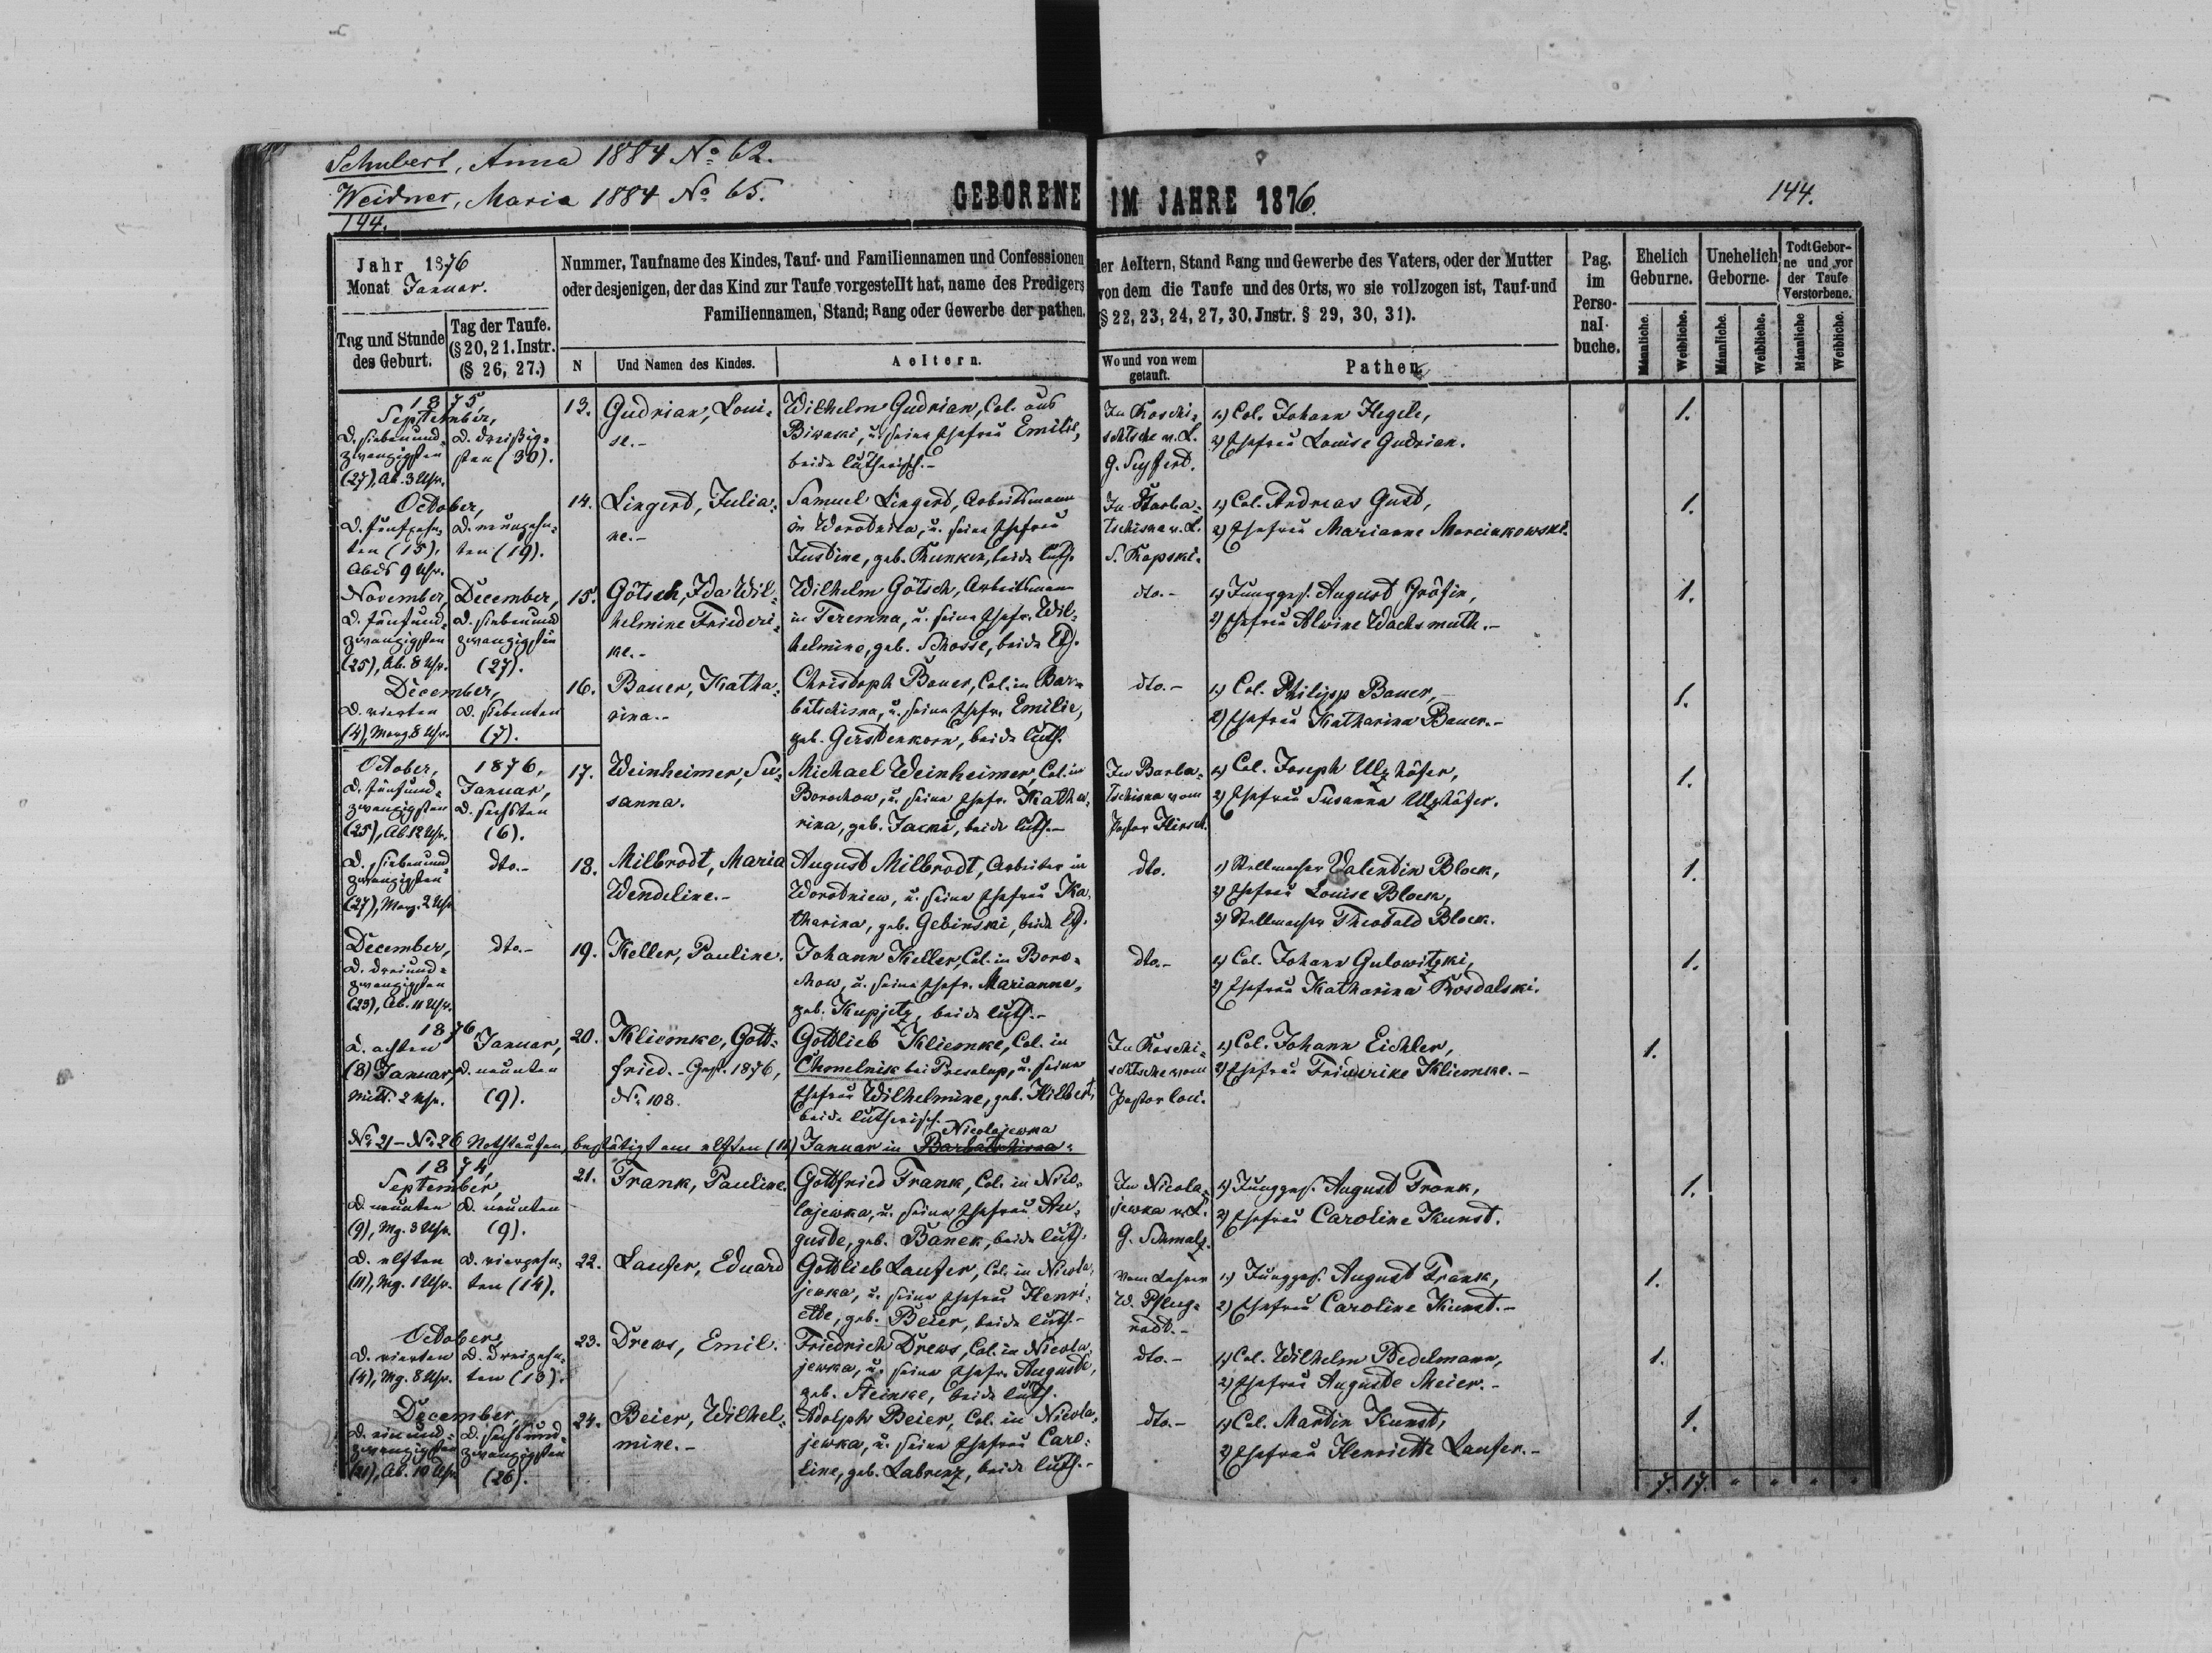 Schubert, Anna 1884 No. 62.
Weidner, Maria 1884 No. 65.
144.
GEBORENE IM JAHRE 1876.
144.
Jahr 1876
Monat Januar.
Tag und Stunde
des Geburt.
Tag der Taufe.
(§ 20, 21. Instr.
(§ 26, 27.)
Nummer, Taufname des Kindes, Tauf- und Familiennamen und Confessionen der Aeltern, Stand Rang und Gewerbe des Vaters, oder der Mutter
oder desjenigen, der das Kind zur Taufe vorgestellt hat, name des Predigers von dem die Taufe und des Orts, wo sie vollzogen ist, Tauf-und
Familiennamen, Stand; Rang oder Gewerbe der pathen. (§ 22, 23, 24, 27, 30. Jnstr. § 29, 30, 31).
N
Und Namen des Kindes.
Aeltern.
Wo und von wem
getauft.
Pathen.
Pag.
im
Perso-
nal-
buche.
Ehelich
Geburne.
Unehelich
Geborne.
Todt Gebor-
ne und vor
der Taufe
Verstorbene.
Männliche.
Weibliche.
Männliche.
Weibliche.
Männliche
Weibliche.
1875
September,
D. siebenund-
zwanzigsten
(27), Ab. 3 Uhr.
D. dreißig-
sten (30).
13.
Gudrian, Loui-
se.-
Wilhelm Gudrian, Col. aus
Biwaki, u. seine Ehefrau Emilie,
beide lutherisch.-
In Koschi-
schtsche v. L.
G. Seyferd.
1) Col. Johann Hegele,
2) Ehefrau Louise Gudrian.
1.
October,
D. fünfzehn-
ten (15),
Abds 9 Uhr.
D. neunzehn-
ten (19).
14.
Lingerd, Julia-
ne.-
Samuel Lingerd, Arbeitsmann
in Worotnica, u. seine Ehefrau
Justine, geb. Kunkel, beide luth.
In Barba-
tschisna v. L.
S. Kapski.
1) Col. Andreas Gust,
2) Ehefrau Marianne Marcinkowski.
1.
November,
D. fünfund-
zwanzigsten
(25), Ab. 8 Uhr.
December,
D. siebenund
zwanzigsten
(27).
15.
Götsch, Ida Wil-
helmine Friederi-
ke.-
Wilhelm Götsch, Arbeitsmann
in Teremna, u. seine Ehefr. Wil-
helmine, geb. Schosse, beide lth.
dto.-
1) Jungges. August Gräfin,
2) Ehefrau Alwine Wachsmuth.-
1.
December,
D. vierten
(4), Morg. 8 Uhr.
D. siebenten
(7).
16.
Bauer, Katha-
rina.-
Christoph Bauer, Col. in Bar-
batschisna, u. seine Ehefr. Emilie,
geb. Gerstenkorn, beide luth.
dto.-
1) Col. Philipp Bauer,-
2) Ehefrau Katharina Bauer.-
1.
October,
D. fünfund-
zwanzigsten
(25), Ab. 12 Uhr.
1876,
Januar,
D. sechsten
(6).
17.
Weinheimer, Su-
sanna.
Michael Weinheimer, Col. in
Borochow, u. seine Ehefr. Katha-
rina, geb. Jacki, beide luth.-
In Barba-
tschisna vom
Pastor Hirsch.
1) Col. Joseph Ulzhöfer,
2) Ehefrau Susanna Ulzhöfer.
1.
D. siebenund
zwanzigsten
(27), Morg. 2 Uhr
dto.-
18.
Milbrodt, Maria
Wendeline.-
August Milbrodt, Arbeiter in
Worotniew, u. seine Ehefrau Ka-
tharina, geb. Gebinski, beide lth.
dto.
1) Stellmacher Valentin Block,
2) Ehefrau Louise Block,
3) Stellmacher Theobald Block.
1.
December,
D. dreiund-
zwanzigsten
(23), Ab. 11 Uhr.
dto.-
19.
Keller, Pauline.
Johann Keller, Col. in Boro-
chow, u. seine Ehefr. Marianne,
geb. Kupjetz, beide luth.-
dto.-
1) Col. Johann Gulowitzki,
2) Ehefrau Katharina Rosdalski.
1.
1876
D. achten
(8) Januar,
Mitt. 2 Uhr.
Januar,
D. neunten
(9).
20.
Kliemke, Gott-
fried.- Gest. 1876,
No. 108.
Gottlieb Kliemke, Col. in
Chmelnik bei Presalup, u. seine
Ehefrau Wilhelmine, geb. Hilbert,
beide lutherisch.-
In Koschi-
schtsche vom
Pastor loci.
1) Col. Johann Eichler,
2) Ehefrau Friederike Kliemke.-
1.
Nicolajewka
No. 21 - No. 26 Nothtaufen, bestätigt am elften (11) Januar in Barbatschisna-
1874,
September,
D. neunten
(9), Mg. 3 Uhr.
D. neunten
(9).
21.
Frank, Pauline.
Gottfried Frank, Col. in Nico-
lajewka, u. seine Ehefrau Au-
guste, geb. Banek, beide luth.
In Nicola-
jewka v. L.
G. Schmalz.
1) Junggs. August Frank,
2) Ehefrau Caroline Kunst.
1.
D. elften
(11), Mg. 1 Uhr.
D. vierzehn-
ten (14).
22.
Laufer, Eduard
Gottlieb Laufer, Col. in Nicola-
jewka, u. seine Ehefrau Henri-
ette, geb. Beier, beide luth.-
vom Lehrer
W. Pflug-
radt.-
1) Junggs. August Frank,
2) Ehefrau Caroline Kunst.-
1.
October,
D. vierten
(4), Mg. 8 Uhr.
D. dreizehn-
ten (13).
23.
Drews, Emil.
Friedrich Drews, Col. in Nicola-
jewka, u. seine Ehefr. Auguste,
geb. Steinke, beide luth.
dto.-
1) Col. Wilhelm Bedelmann,
2) Ehefrau Auguste Meier.-
1.
December,
D. einund-
zwanzigsten
(21), Ab. 10 Uhr.
D. sechsund-
zwanzigsten
(26).
24.
Beier, Wilhel-
mine.-
Adolph Beier, Col. in Nicola-
jewka, u. seine Ehefrau Caro-
line, geb. Labrenz, beide luth.-
dto.-
1) Col. Martin Kunst,
2) Ehefrau Henriette Laufer.-
1.
7. 17. " " " "